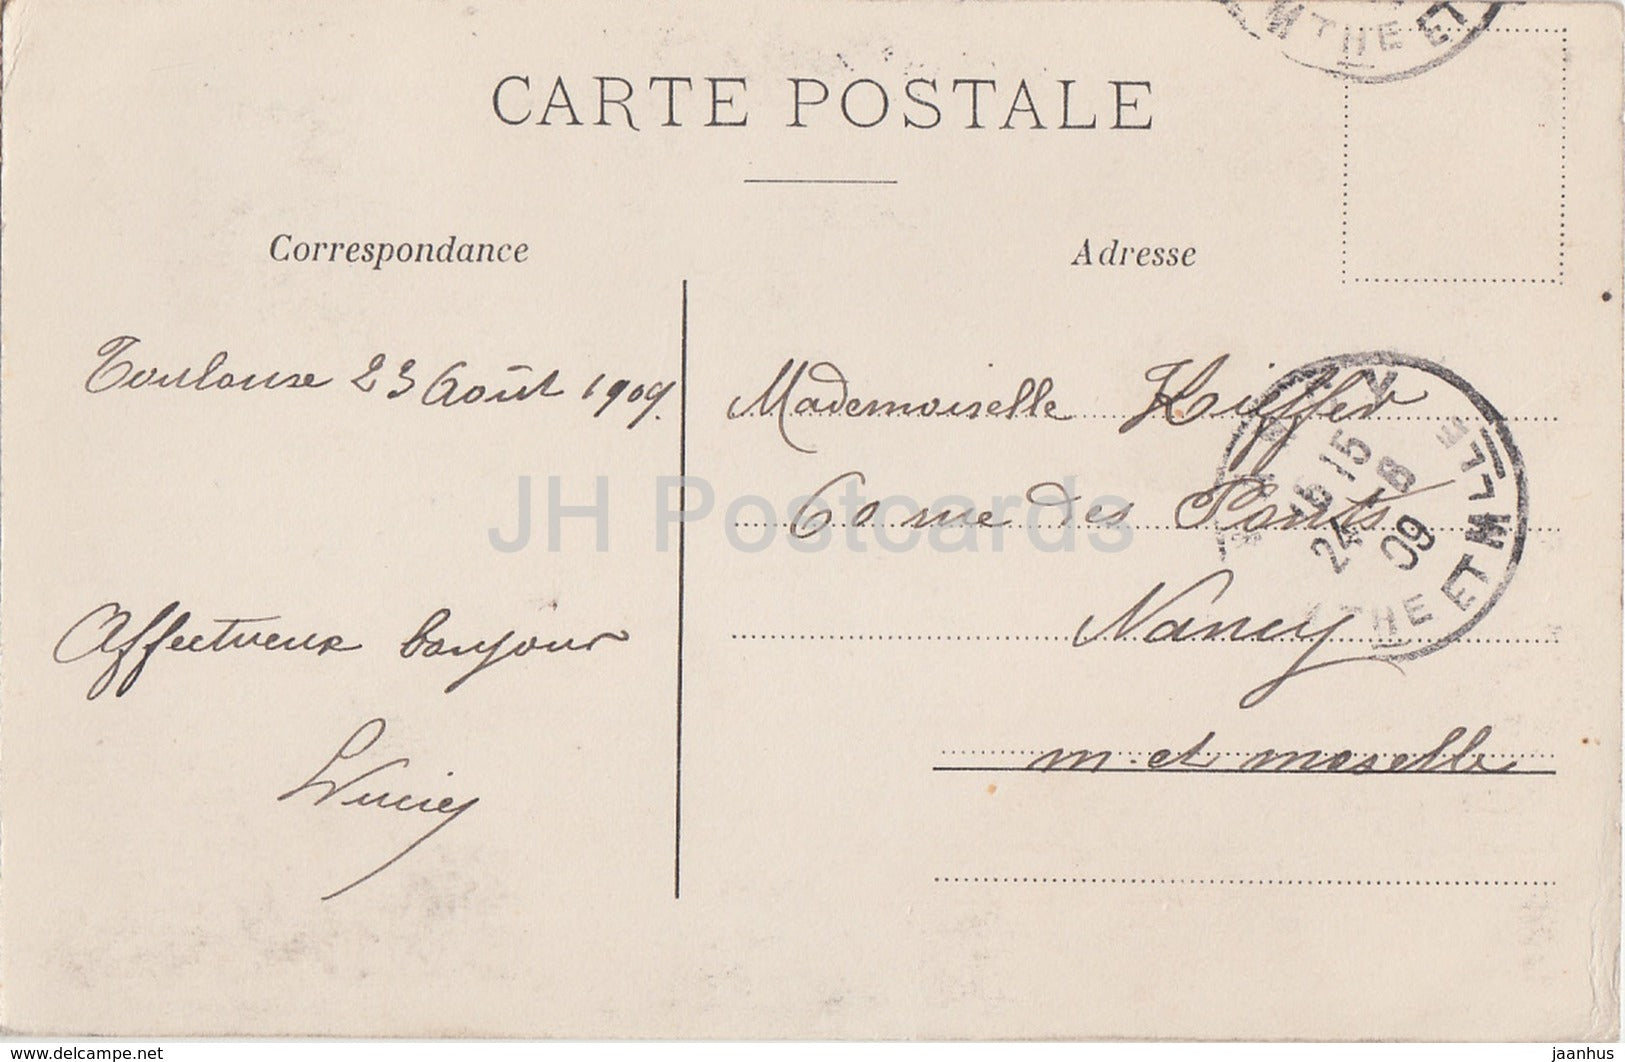 CARTE POSTALE
Correspondance
Adresse
Toulouse 23 Août 1909.
Affectueux bonjour
Mademoiselle Kieffer
60 rue des Ponts
Nancy
m. et moselle
15 15
24 - 8
09
THE ET M
THE ET
JH Postcards
delcampe.net
jaanhus